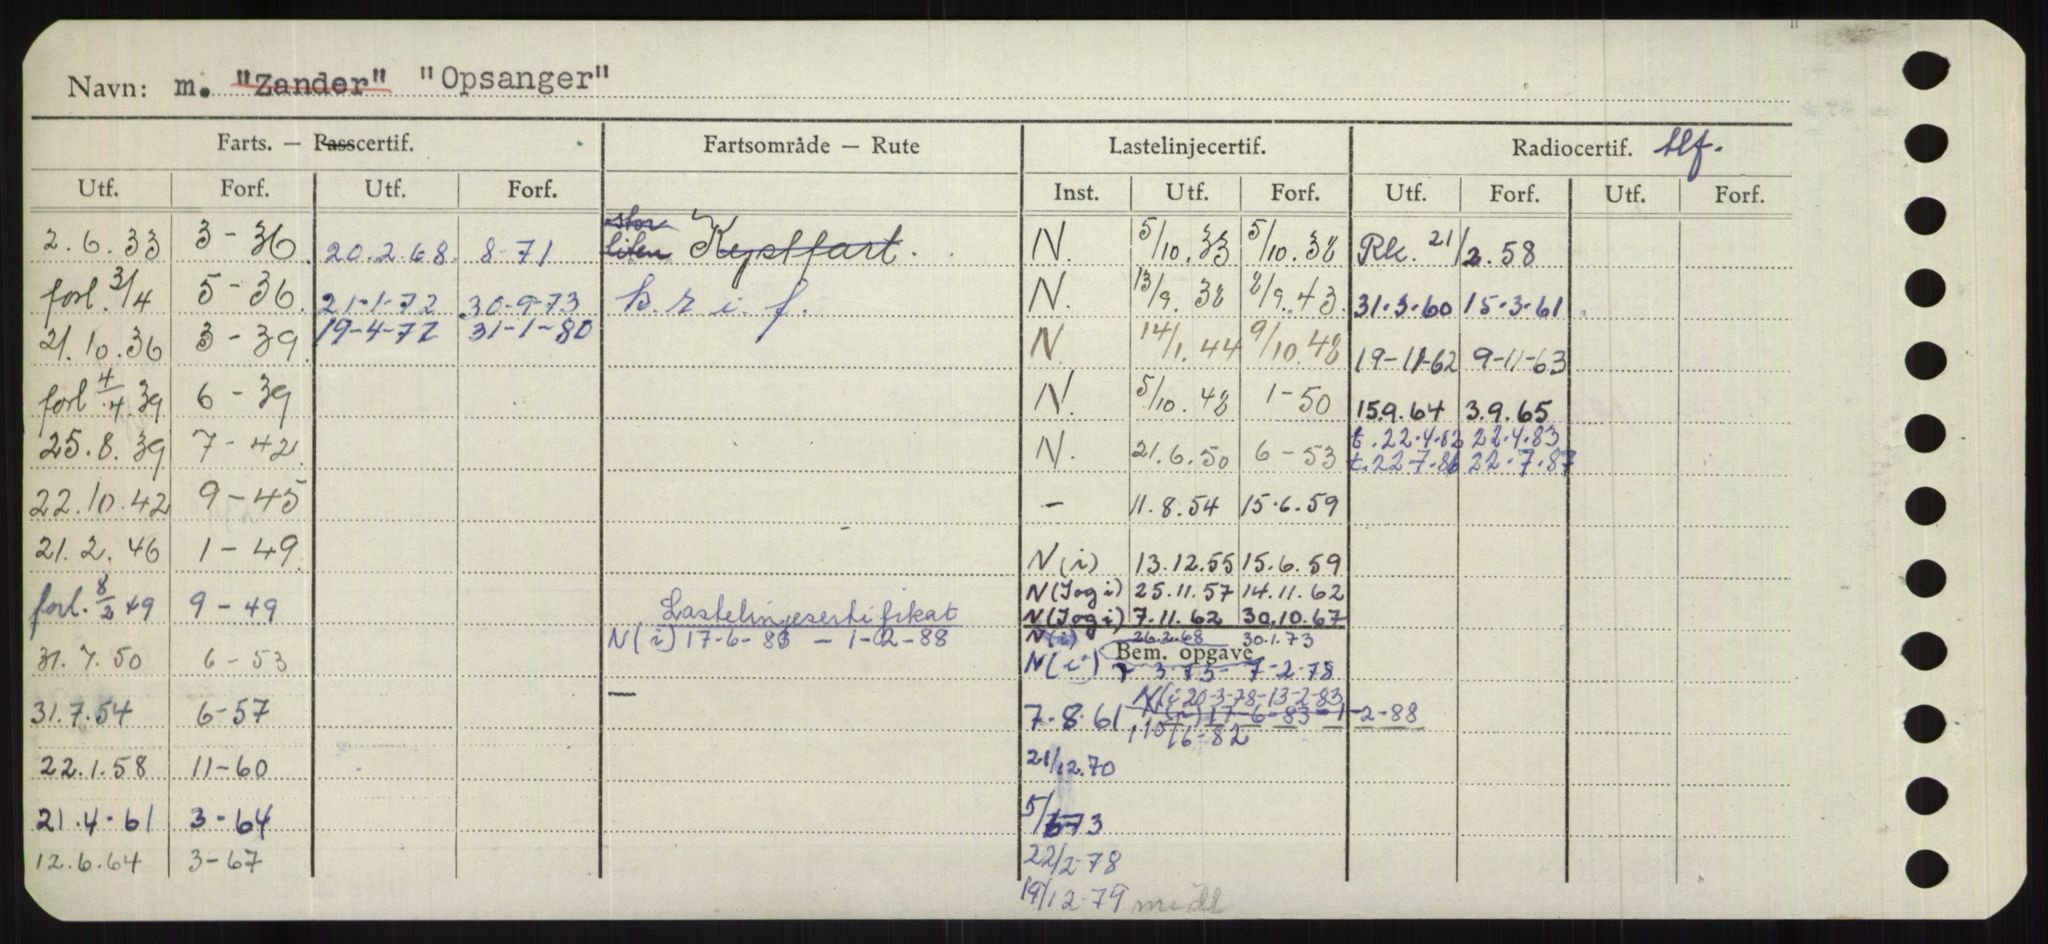 Navn: m. "Zander" "Opsanger"
Farts. — Passcertif. Fartsområde — Rute Lastelinjecertif. Radiocertif. tlf.
Utf. Forf. Utf. Forf. Inst. Utf. Forf. Utf. Forf. Utf. Forf.
stor
2.6.33 3-36 20.2.68. 8-71 liten Kystfart. N. 5/10.33 5/10.38 Rk. 21/2.58
forl. 3/4 5-36 21-1-72 30-9-73 k.r.i.f. N. 13/9.38 2/9.43 31.3.60 15.3.61
19-4-77 31-1-80
21.10.36 3-39 N 14/1.44 9/10.48 19-11-62 9-11-63
forl 4/4.39 6-39 N. 5/10.48 1-50 15.9.64 3.9.65
t.22.4.82 22.4.83
25.8.39 7-42 N. 21.6.50 6-53 t.22-7.86 22.7.87
22.10.42 9-45 — 11.8.54 15.6.59
21.2.46 1-49 N(i) 13.12.55 15.6.59
N(Jogi) 25.11.57 14.11.62
forl. 8/2 49 9-49 Lastelinjesertifikat N(Jogi) 7.11.62 30.10.67
N(i) 17-6-83 - 1-2-88 N(i) 26.2.68 30.1.73
31.7.50 6-53 N(i) Bem. opgave
3-73- 7-2-78
—
N(i 20-3-78-13-2-83
31.7.54 6-57 7.8.61 N(i) 17-6-83-1-2-88
16-82
22.1.58 11-60 21/12.70
21.4.61 3-64 5/673
12.6.64 3-67 22/2-78
19/12-79 midl